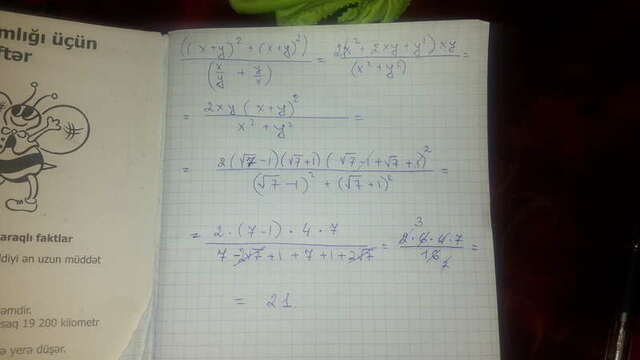 mlığı üçün
ftər
araqlı faktlar
ldiyi ən uzun müddət
əmdir.
saq 19 200 kilometr
ə yerə düşər.
((x+y)² + (x+y)²) / (x/y + y/x) = 2(x² + 2xy + y²)xy / (x² + y²) =
= 2xy(x+y)² / x² + y² =
= 2(√7-1)(√7+1)(√7-1+√7+1)² / (√7-1)² + (√7+1)² =
= 2·(7-1)·4·7 / 7-2√7+1+7+1+2√7 = 3 2·6·4·7 / 16 2 =
= 21